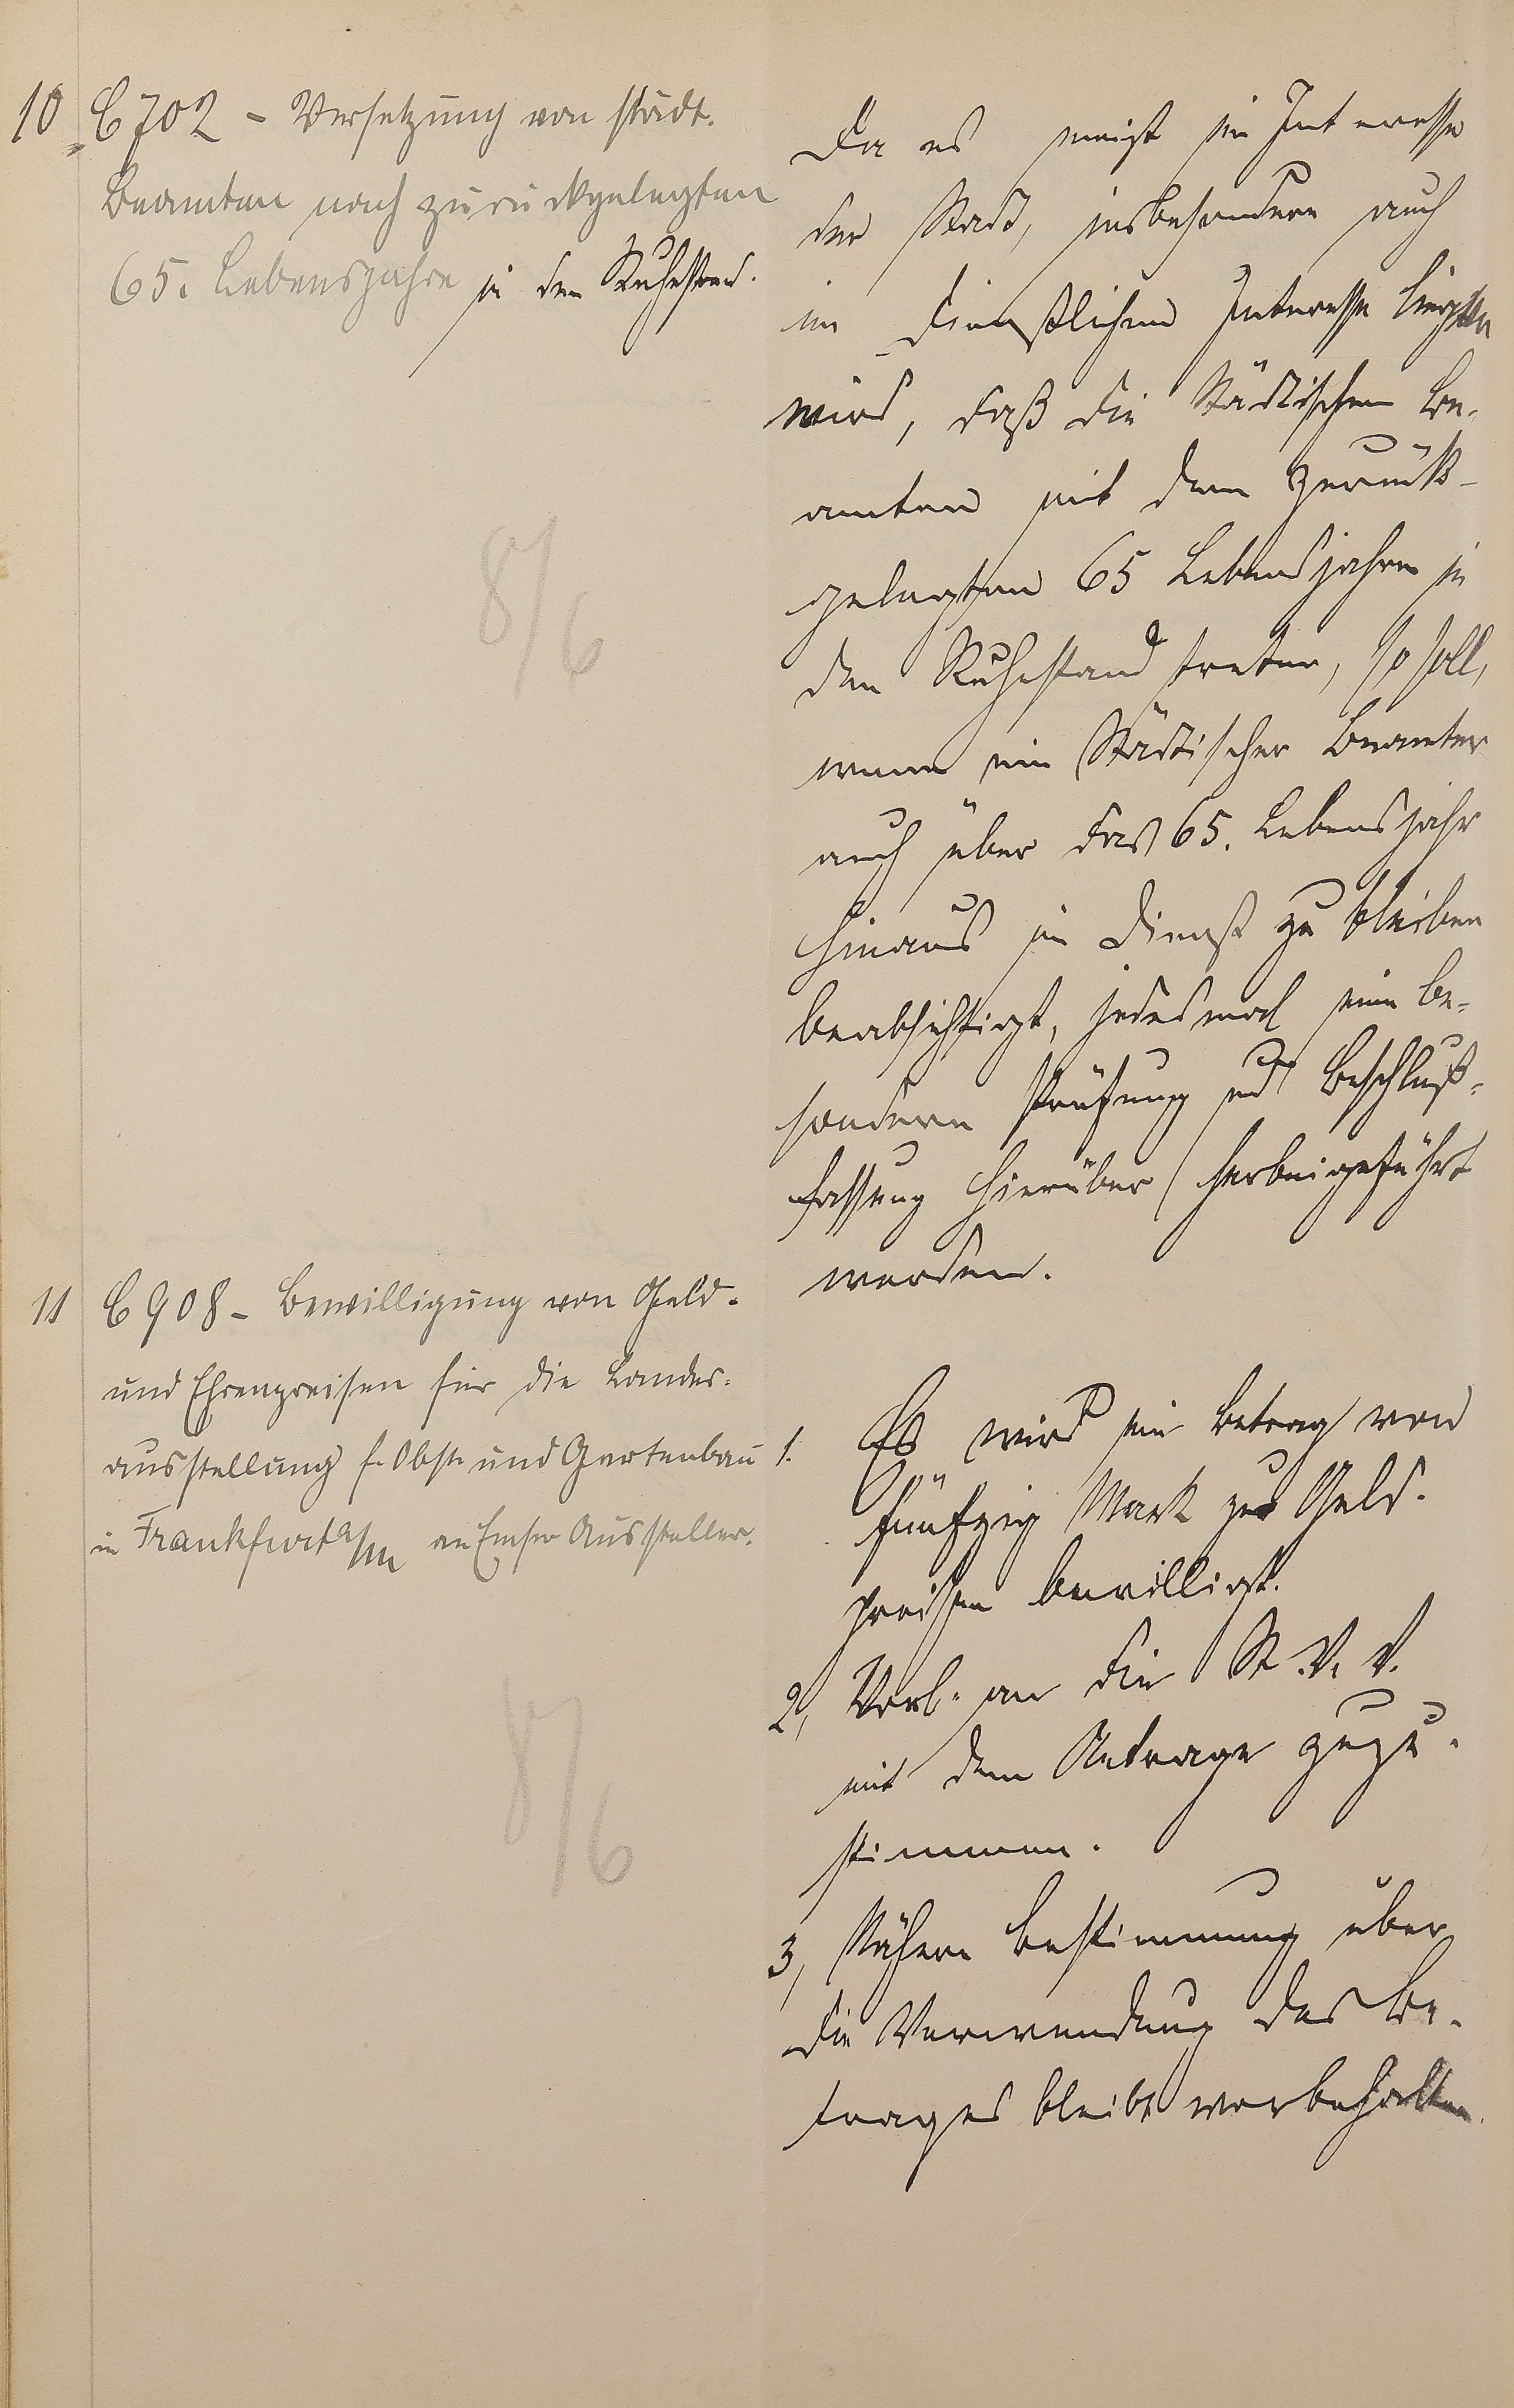 10 C 702 - Versetzung von städt.
Beamten nach zurückgelegten
65. Lebensjahre in den Ruhestand.
8/6
Da es meist im Interesse
der Stadt, insbesondere auch
im dienstlichen Interesse liegen
wird, daß die Städtischen Be-
amten mit dem zurück-
gelegten 65 Lebensjahre in
den Ruhestand treten, so soll,
wenn ein Städtischer Beamter
auch über das 65. Lebensjahr
hinaus im Dienst zu bleiben
beabsichtigt, jedesmal eine be-
sondere Prüfung und Beschluß-
fassung hierüber herbeigeführt
werden.
11 C 908 - Bewilligung von Geld-
und Ehrenpreisen für die Landes-
ausstellung f. Obst- und Gartenbau
in Frankfurt a/M an Emser Aussteller.
8/6
1. Es wird ein Betrag von
fünfzig Mark zu Geld-
preisen bewilligt.
2, Vorl. an die St. V. V.
mit dem Antrage zuzu-
stimmen.
3, Nähere Bestimmung über
die Verwendung des Be-
trages bleibt vorbehalten.